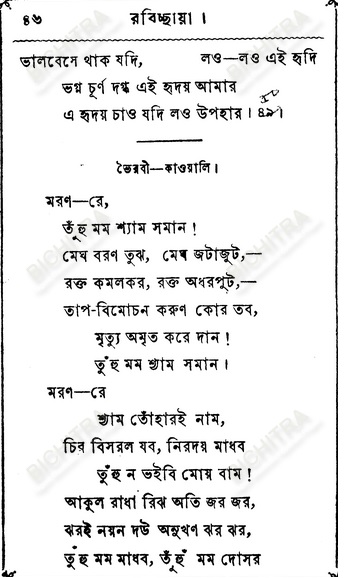 ৪৬ রবিচ্ছায়া ।
ভালবেসে থাক যদি, লও—লও এই হৃদি
ভগ্ন চূর্ণ দগ্ধ এই হৃদয় আমার
এ হৃদয় চাও যদি লও উপহার । ৪৯।
ভৈরবী—কাওয়ালি ।
মরণ—রে,
তুঁহু মম শ্যাম সমান !
মেঘ বরণ তুঝ, মেঘ জটাজুট,—
রক্ত কমলকর, রক্ত অধরপুট,—
তাপ-বিমোচন করুণ কোর তব,
মৃত্যু অমৃত করে দান !
তুঁহু মম শ্যাম সমান ।
মরণ—রে
শ্যাম তোঁহারই নাম,
চির বিসরল যব, নিরদয় মাধব
তুঁহু ন ভইবি মোয় বাম !
আকুল রাধা রিঝ অতি জর জর,
ঝরই নয়ন দউ অনুখণ ঝর ঝর,
তুঁহু মম মাধব, তুঁহুঁ মম দোসর
BICHITRA